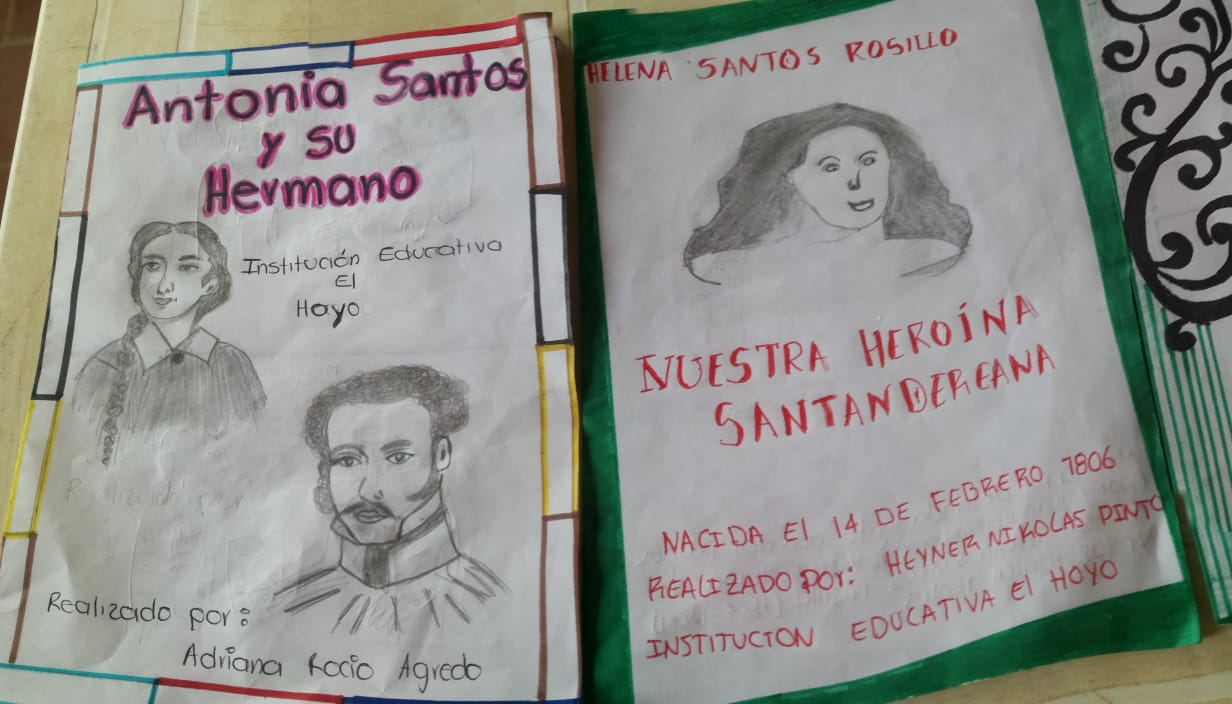 Antonia Santos
y su
Hermano
Institución Educativa
El
Hoyo
Realizado por:
Adriana Rocio Agredo
HELENA SANTOS ROSILLO
NUESTRA HEROÍNA
SANTANDEREANA
NACIDA El 14 DE FEBRERO 1806
REALIZADO POr: HEYNER NIKOLAS PINTO
INSTITUCION EDUCATIVA El HOYO